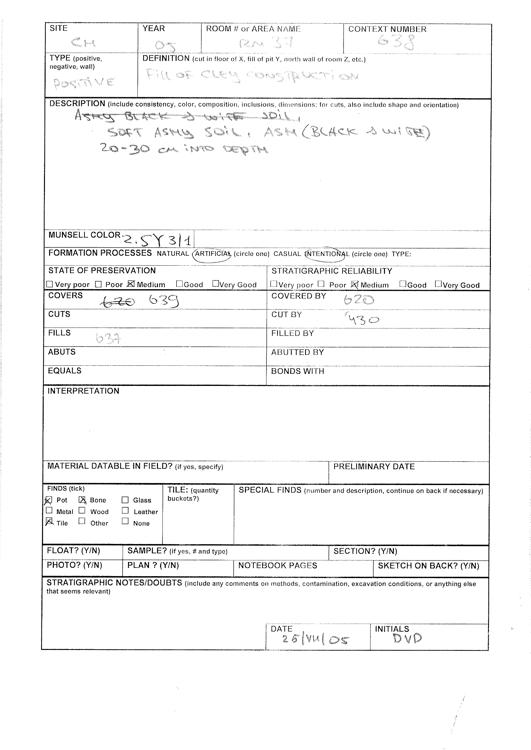 SITE YEAR ROOM # or AREA NAME CONTEXT NUMBER
CH 05 RM 37 638
TYPE (positive, negative, wall) DEFINITION (cut in floor of X, fill of pit Y, north wall of room Z, etc.)
POSITIVE FILL OF CLEY CONSTRUCTION
DESCRIPTION (include consistency, color, composition, inclusions, dimensions; for cuts, also include shape and orientation)
ASHY BLACK & WITE SOIL,
SOFT ASHY SOIL, ASH (BLACK & WITE)
20-30 CM INTO DEPTH
MUNSELL COLOR 2.5Y 3/1
FORMATION PROCESSES NATURAL ARTIFICIAL (circle one) CASUAL INTENTIONAL (circle one) TYPE:
STATE OF PRESERVATION STRATIGRAPHIC RELIABILITY
Very poor Poor Medium Good Very Good Very poor Poor Medium Good Very Good
COVERS 620 639 COVERED BY 620
CUTS CUT BY 430
FILLS 637 FILLED BY
ABUTS ABUTTED BY
EQUALS BONDS WITH
INTERPRETATION
MATERIAL DATABLE IN FIELD? (if yes, specify) PRELIMINARY DATE
FINDS (tick) TILE: (quantity buckets?) SPECIAL FINDS (number and description, continue on back if necessary)
Pot Bone Glass
Metal Wood Leather
Tile Other None
FLOAT? (Y/N) SAMPLE? (if yes, # and type) SECTION? (Y/N)
PHOTO? (Y/N) PLAN ? (Y/N) NOTEBOOK PAGES SKETCH ON BACK? (Y/N)
STRATIGRAPHIC NOTES/DOUBTS (include any comments on methods, contamination, excavation conditions, or anything else
that seems relevant)
DATE INITIALS
26/VII/05 DVD